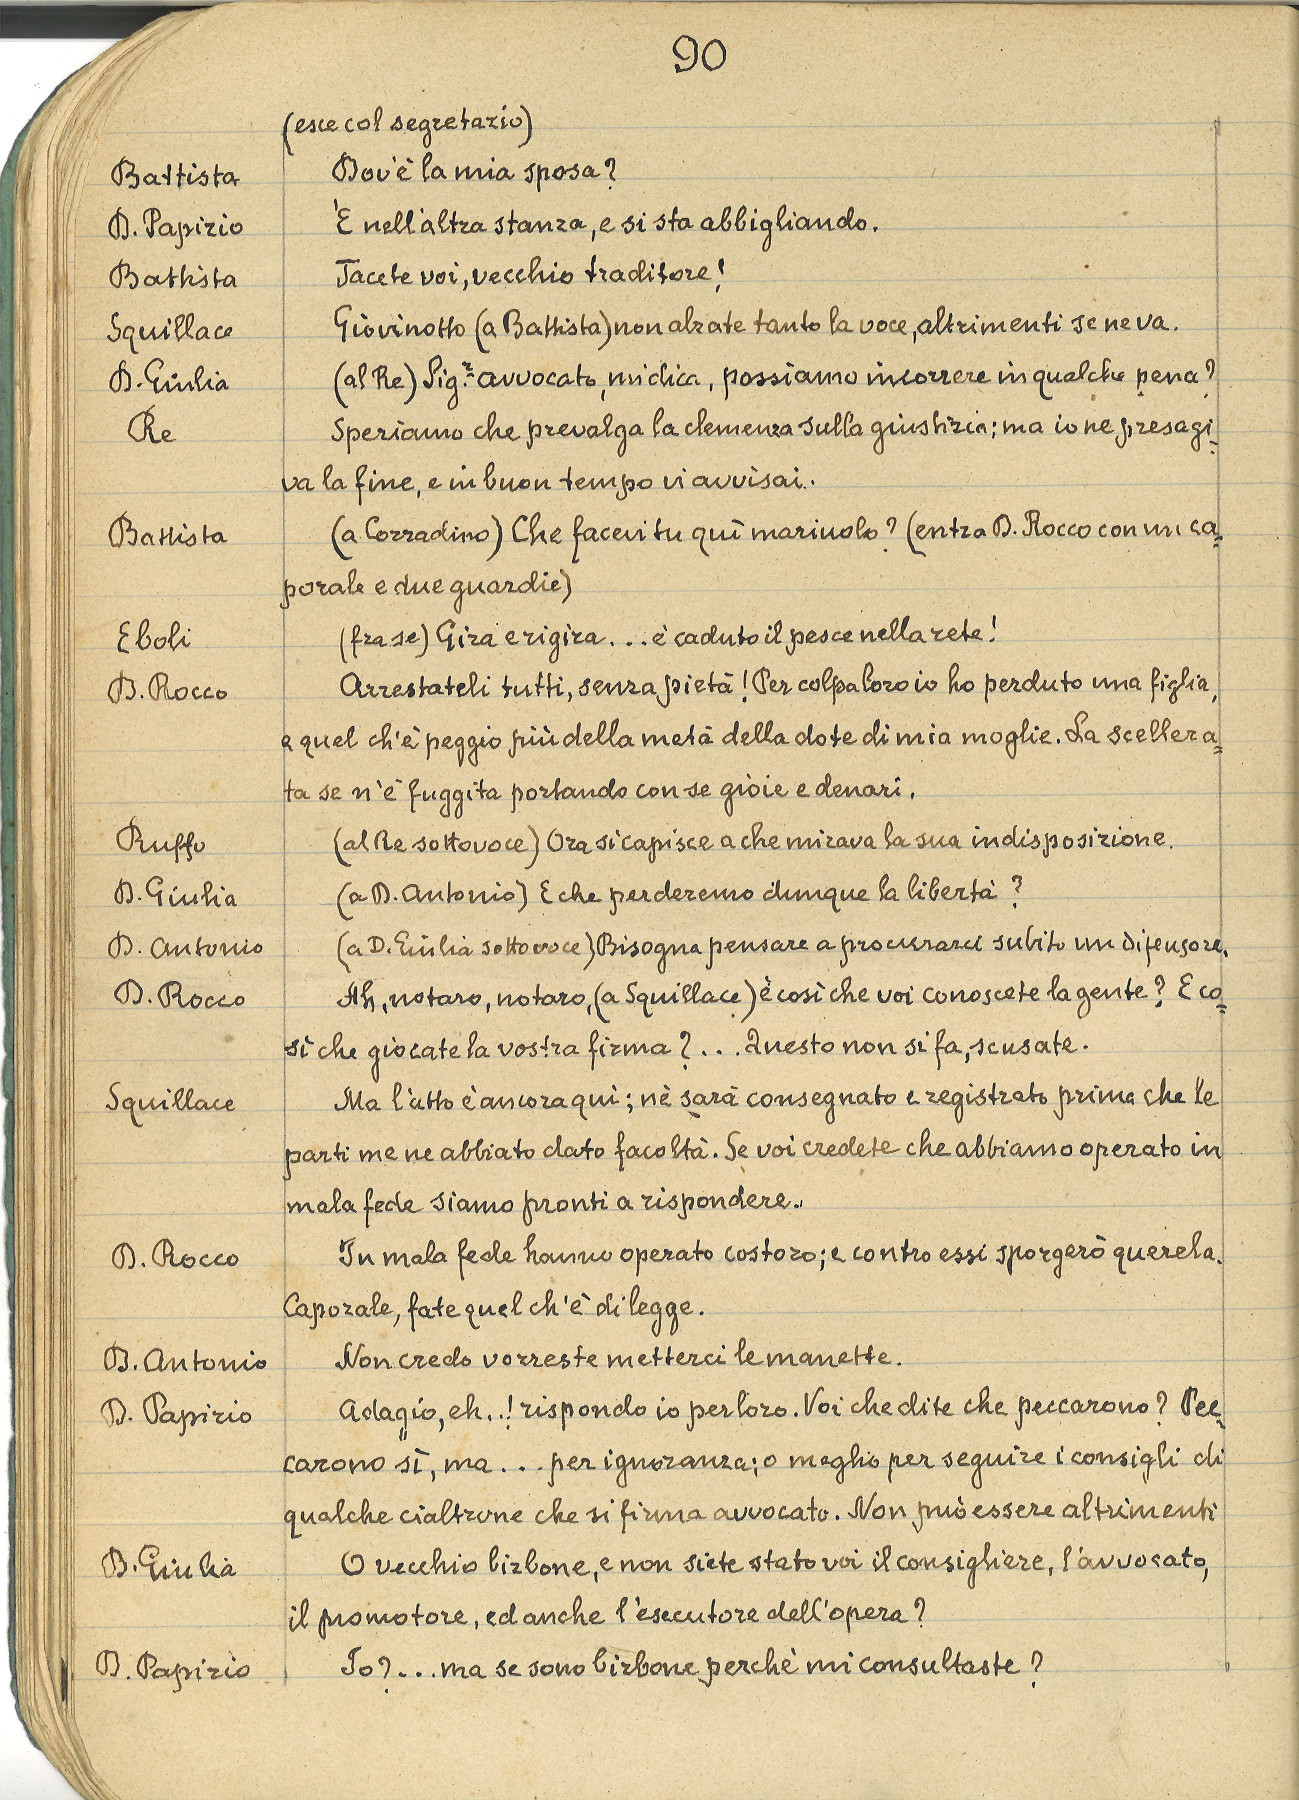 90
(esce col segretario)
Battista Dov'è la mia sposa?
D. Papirio 'E nell'altra stanza, e si sta abbigliando.
Battista Tacete voi, vecchio traditore!
Squillace Giovinotto (a Battista) non alzate tanto la voce, altrimenti se ne va.
D. Giulia (al Re) Sig.r avvocato, mi dica, possiamo incorrere in qualche pena?
Re Speriamo che prevalga la clemenza sulla giustizia; ma io ne presagi-
va la fine, e in buon tempo vi avvisai.
Battista (a Corradino) Che facevi tu quì mariuolo? (entra D. Rocco con un ca=
porale e due guardie)
Eboli (fra se) Gira e rigira... è caduto il pesce nella rete!
D. Rocco Arrestateli tutti, senza pietà! Per colpa loro io ho perduto una figlia,
e quel ch'è peggio più della metà della dote di mia moglie. La scellera=
ta se n'è fuggita portando con se gioie e denari.
Ruffo (al Re sottovoce) Ora si capisce a che mirava la sua indisposizione.
D. Giulia (a D. Antonio) E che perderemo dunque la libertà?
D. Antonio (a D. Giulia sottovoce) Bisogna pensare a procurarci subito un difensore.
D. Rocco Ah, notaro, notaro, (a Squillace) è così che voi conoscete la gente? E co=
sì che giocate la vostra firma?... Questo non si fa, scusate.
Squillace Ma l'atto è ancora quì; nè sarà consegnato e registrato prima che le
parti me ne abbiato dato facoltà. Se voi credete che abbiamo operato in
mala fede siamo pronti a rispondere.
D. Rocco In mala fede hanno operato costoro; e contro essi sporgerò querela.
Caporale, fate quel ch'è di legge.
D. Antonio Non credo vorreste metterci le manette.
D. Papirio Adagio, eh..! rispondo io per loro. Voi che dite che peccarono? Pec=
carono sì, ma... per ignoranza; o meglio per seguire i consigli di
qualche cialtrone che si firma avvocato. Non può essere altrimenti
D. Giulia O vecchio birbone, e non siete stato voi il consigliere, l'avvocato,
il promotore, ed anche l'esecutore dell'opera?
D. Papirio Io?... ma se sono birbone perchè mi consultaste?